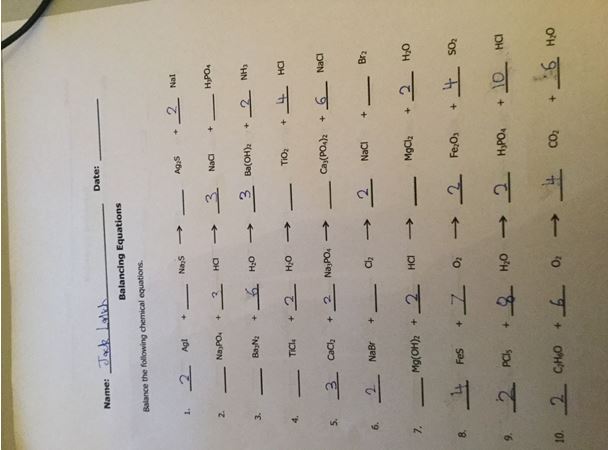 Name: Jack Date:
Balancing Equations
Balance the following chemical equations.
1. 2 AgI + ___ Na₂S → ___ Ag₂S + 2 NaI
2. ___ Na₃PO₄ + 3 HCl → 3 NaCl + ___ H₃PO₄
3. ___ Ba₃N₂ + 6 H₂O → 3 Ba(OH)₂ + 2 NH₃
4. ___ TiCl₄ + 2 H₂O → ___ TiO₂ + 4 HCl
5. 3 CaCl₂ + 2 Na₃PO₄ → ___ Ca₃(PO₄)₂ + 6 NaCl
6. 2 NaBr + ___ Cl₂ → 2 NaCl + ___ Br₂
7. ___ Mg(OH)₂ + 2 HCl → ___ MgCl₂ + 2 H₂O
8. 4 FeS + 7 O₂ → 2 Fe₂O₃ + 4 SO₂
9. 2 PCl₅ + 8 H₂O → 2 H₃PO₄ + 10 HCl
10. 2 C₂H₆O + 6 O₂ → 4 CO₂ + 6 H₂O